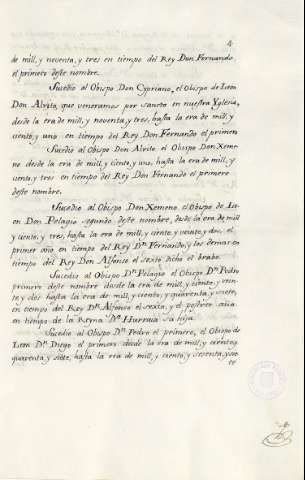 4
de mill, y noventa, y tres en tiempo del Rey Don Fernando
el primero deste nombre.
Sucedio al Obispo Don Cypriano, el Obispo de Leon
Don Alvito, que veneramos por sancto en nuestra Yglesia,
desde la era de mill, y noventa, y tres, hasta la era de mill, y
ciento, y uno en tiempo del Rey Don Fernando el primero
Sucedio al Obispo Don Alvito el Obispo Don Xeme-
no desde la era de mill, y ciento, y uno, hasta la era de mill, y
ciento, y tres en tiempo del Rey Don Fernando el primero
deste nombre.
Sucedio al Obispo Don Xemeno el Obispo de Le-
on Don Pelagio segundo deste nombre, desde la era de mill
y ciento, y tres, hasta la era de mill, y ciento, y veinte, y dos, el
primer año en tiempo del Rey Dn Fernando, y los demas en
tiempo del Rey Don Alfonso el sexto, dicho el brabo.
Sucedio al Obispo Dn Pelagio el Obispo Dn Pedro
primero deste nombre desde la era de mill, y ciento, y vein-
te, y dos hasta la era de mill, y ciento, y quaventa, y siete,
en tiempo del Rey Dn Alfonso el sexto, y el postrer año
en tiempo de la Reyna Da Hurraca su hija.
Sucedio al Obispo Dn Pedro el primero, el Obispo de
Leon Dn Diego el primero desde la era de mill, y ciento, y
quaventa, y siete, hasta la era de mill, y ciento, y sesenta, y sie
te